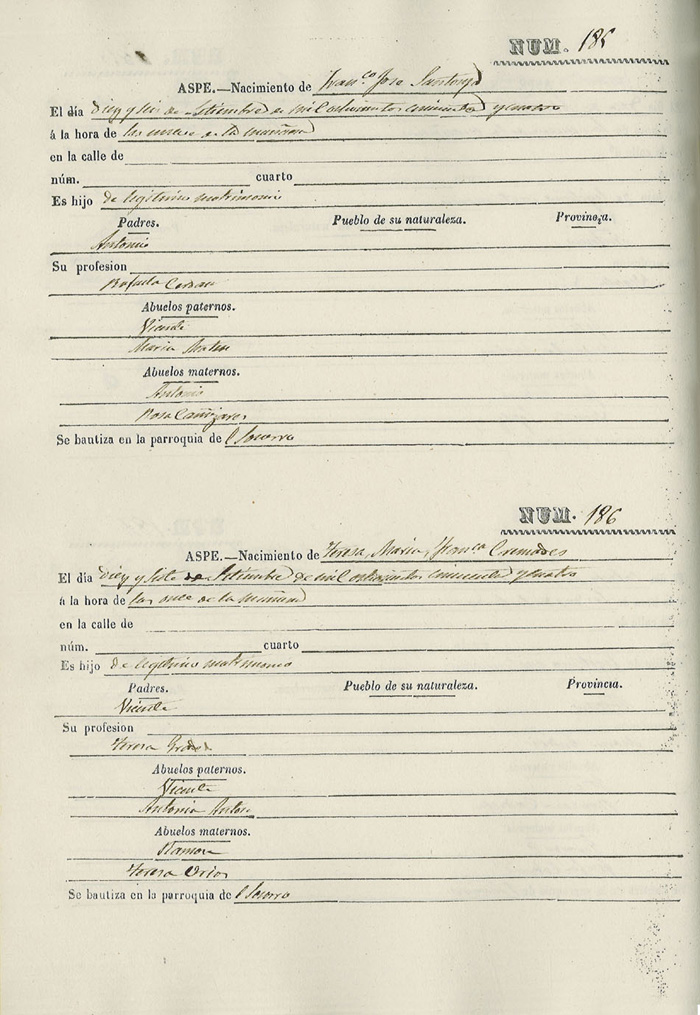 NUM. 185
ASPE.—Nacimiento de Fran.co Jose Santonja
El día diez y seis de Setiembre de mil ochocientos cincuenta y cuatro
á la hora de las nueve de la mañana
en la calle de
núm. cuarto
Es hijo de legitimo matrimonio
Padres. Pueblo de su naturaleza. Provincia.
Antonio
Su profesion
Rafaela
Abuelos paternos.
Vicente
Maria
Abuelos maternos.
Antonio
Rosa Cañizares
Se bautiza en la parroquia de el Socorro
NUM. 186
ASPE.—Nacimiento de Teresa, Maria, Franca Cremades
El día diez y siete de Setiembre de mil ochocientos cincuenta y cuatro
á la hora de las once de la mañana
en la calle de
núm. cuarto
Es hijo de legitimo matrimonio
Padres. Pueblo de su naturaleza. Provincia.
Vicente
Su profesion
Teresa
Abuelos paternos.
Vicente
Antonia
Abuelos maternos.
Ramon
Teresa
Se bautiza en la parroquia de el Socorro